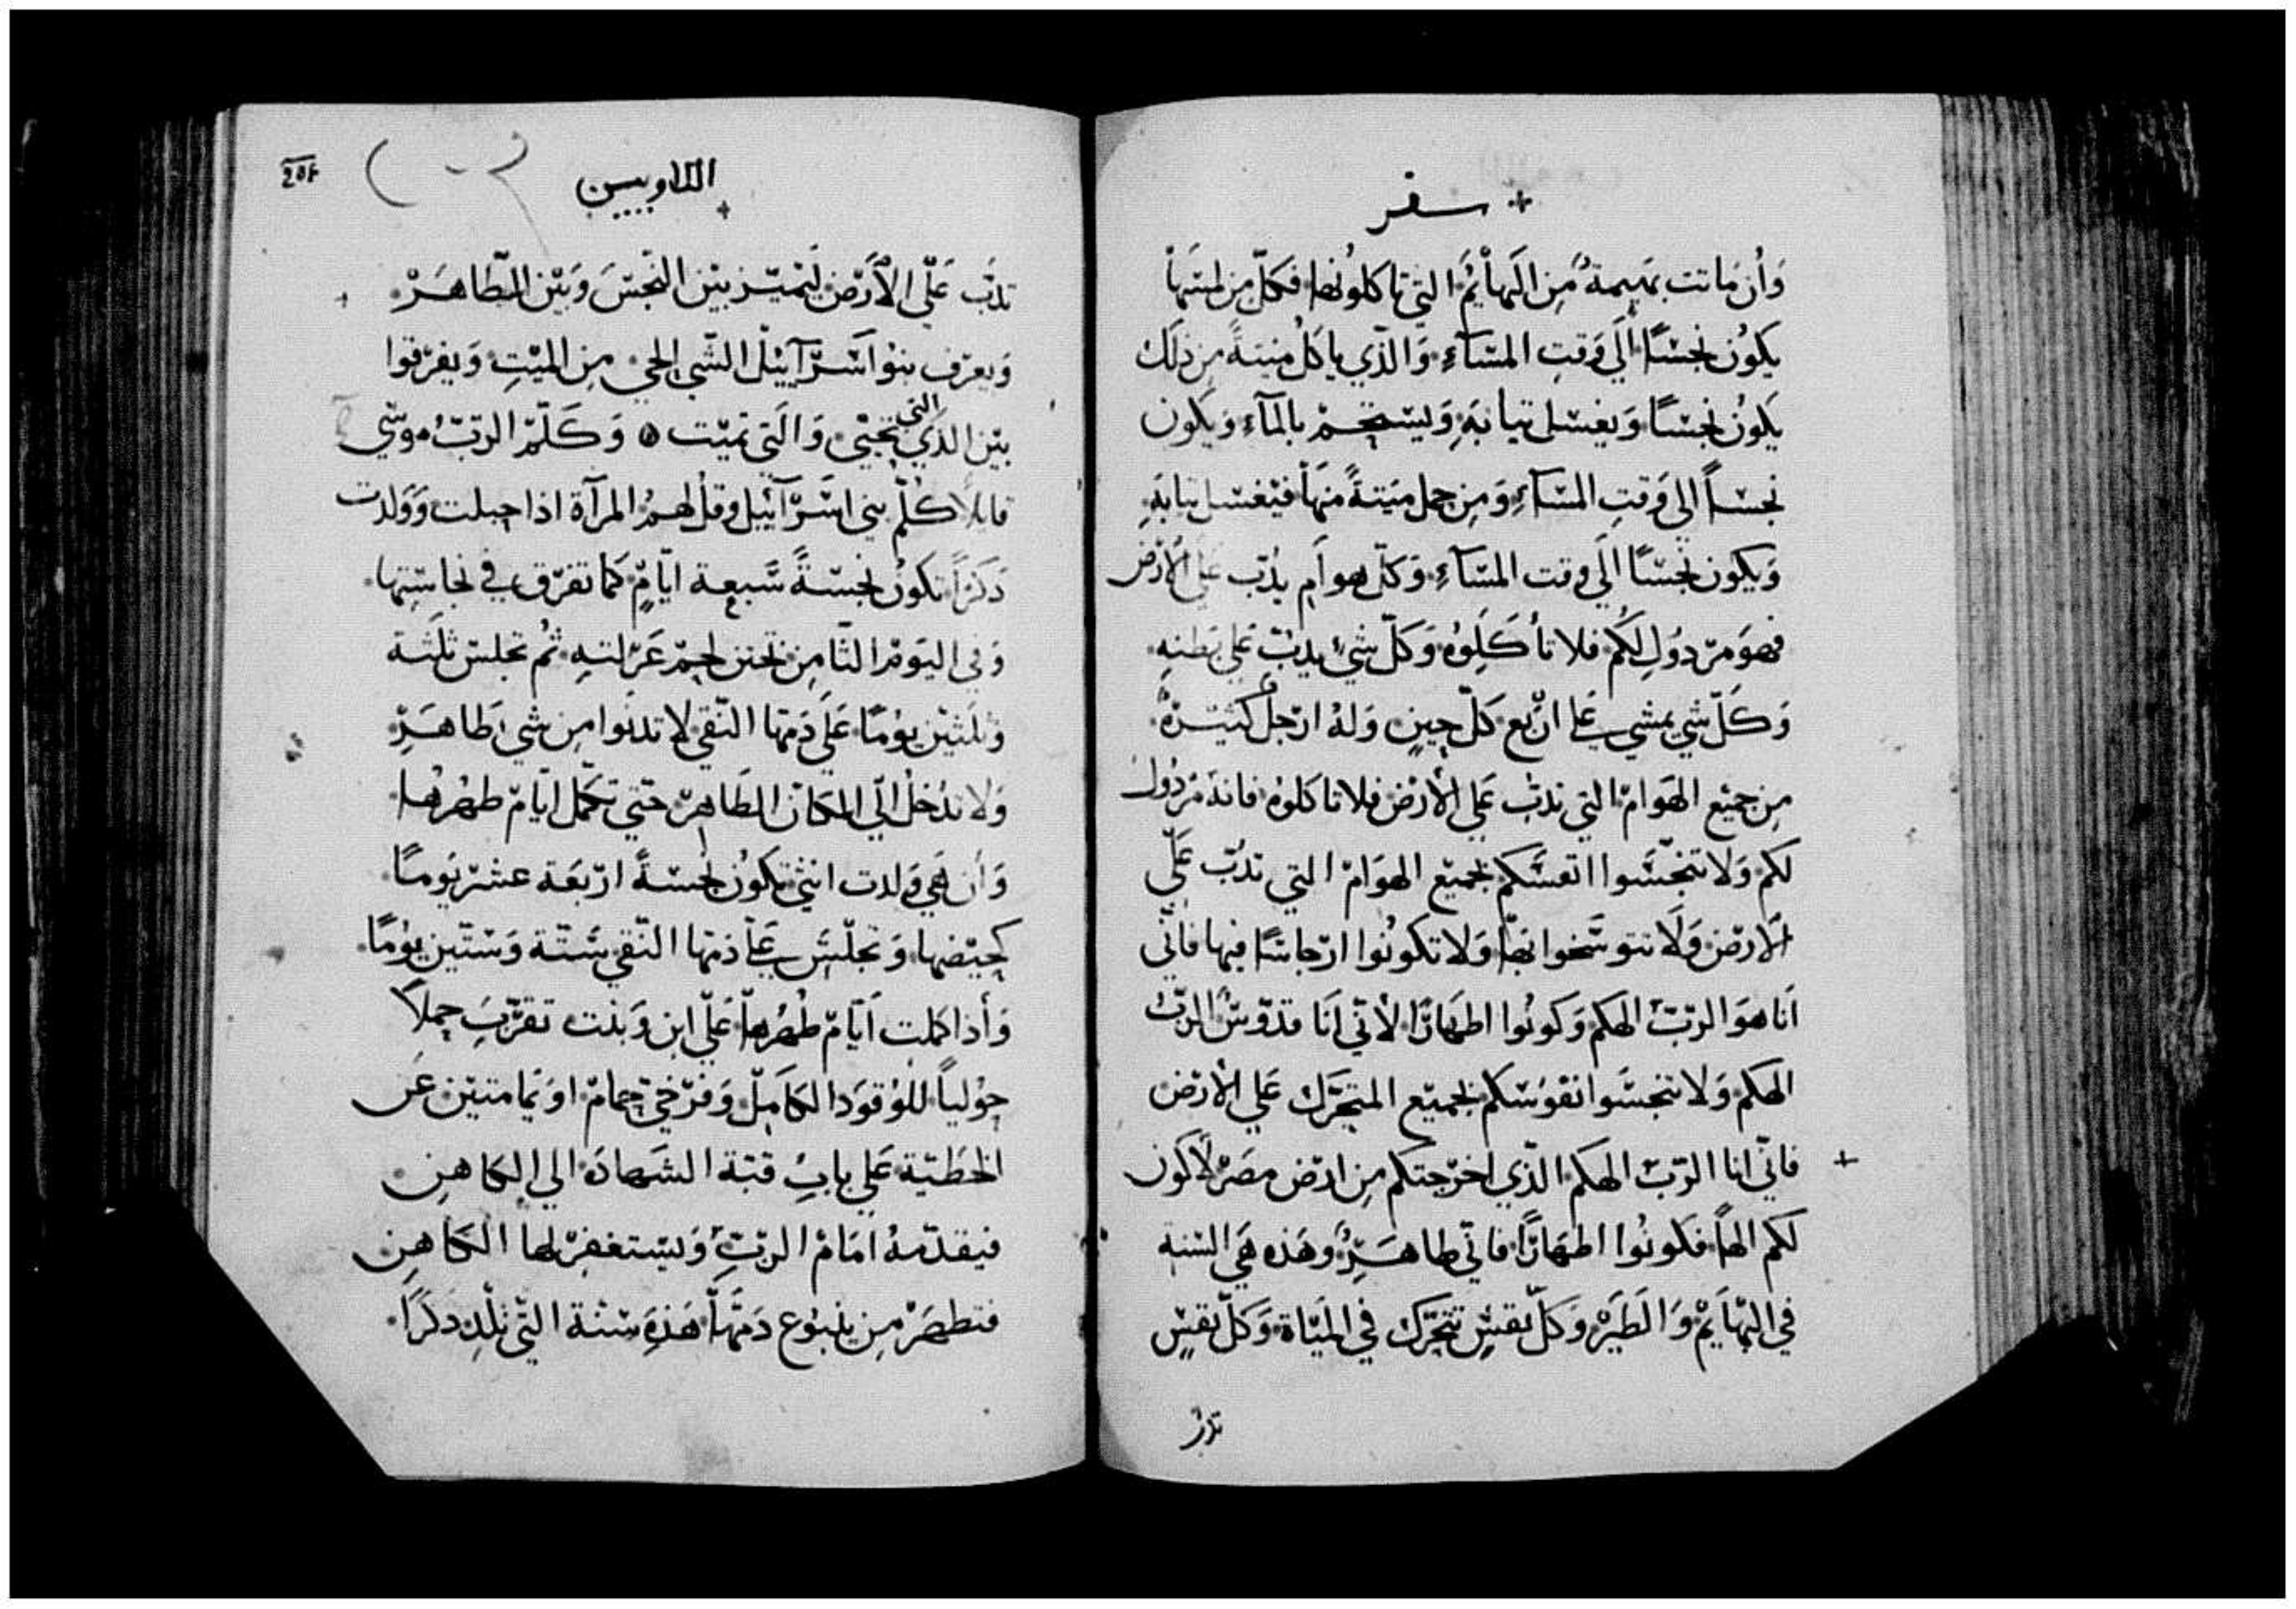 سفر
وَأن مَاتت بهيمةٌ مِن البَهأئمَ التي تاكلونها فكلّ من لمسَهأ
يكوُن نجسًا الَي وَقتِ المسَآءِ وَالذّي ياكلُ ميتةً من ذلَك
يَكوُن نجسًا وَيغسَل تيابَهِ وَليسَتحِمْ بالمآءِ وَيكَون
نجسَاً الي وَقتِ المسَآءِ وَمِن حمل ميَتةً منهَا فيَغسَل تيابَهِ
وَيكون نجَسًا الَي وقت المسَآءِ وَكلّ هوأم يدُبّ علَي الأرْض
فهوَ مرَدوُل لكُم فلا تأكَلوُه وَكلّ شيْ يدبّ عَلي بَطنهِ
وَكَلّ شي يمشي علي ارْبع كلّ حِينٍ وَلهُ ارَجلٌ كثيَرةٌ
مِن جميَع الهَوامْ التي تدبْ عَلي الأرَض فلا تاكلوُه فانهُ مرَدولٌ
لكم وَلا تنجّسَوا انفسَّكم بجميَع الهوَامْ التي تدُبّ عَلّي
الأرَض وَلَا تتوسَّخوا بهَا وَلا تكوُنوا ارَجاسًا فيها فانّي
اَنا هوَ الرَبّ الهكم وَكونُوا اطهَارًا لأنّي اَنَا قدّوسٌ الرَبّ
الهكم وَلا تنجسَّوا نفوُسَكم بجميَع المتحَرّك عَلي الأرَض
فانّي انا الرَبّ الهكم الذّي اخرَجتكم مِن ارَض مصَرَ لأكوَن
لكم الهاً فكونُوا اطهَارًا فانّي طاهَرٌ وهَذه هَي السَنة
في البهَايَمْ وَالطَيَرْ وَكلّ نفسٍ تتحَرّك في الميَاة وَكلّ نفسٍ
تدبُ
اللاويين
تدَبّ عَلّي الأرَض لَيَميّز بَيْن النجْسَ وَبَيْن الطّاهَرْ
وَيعرَف بنوُا اسَرَآئيْل الشَي الحي مِن الميْتِ وَيفرَقوا
بيْن الذَي التي تحيْي وَالتَي تميْت وَكَلّمَ الرَبّ موسَي
قايلاً كلّم بَني اسَرَآئيْل وقلُ لهمُ المرَآة اذا حبلت وَوَلدت
دَكرَاً تكوُن نجسَةً سَبعة ايّامٍ كمَا تفرَق في نجاسَتها
وَفي اليَومْ الثّامِن تختن لحِمْ عَرَلتهِ تمُ تجلسَ ثلَثة
وَثلَثيْن يوُمًا عَلَي دَمهَا النَقي لا تدنوُا مِن شي طَاهَرٍ
وَلا تدُخلُ الَي المكَان الطَاهِرْ حتيّ تكمَل ايّامَ طهُرهَا
وَأن هَي وَلدت انثي تكوُن نجسَةً ارَبعَة عشرْ يَومًا
كحيَضها وَتجلسَ عَلي دَمهَا النَقي سَتّة وَسَتّين يوُمًا
وَأذا كملت اَيّامَ طهُرهَا عَلّي ابن وَبنت تقرّبَ حملاً
حوُلياً للوُقوَد الكَامِلْ وَفرَخيْ حمامْ اوَ يمَامتيْن عَن
الخطَيّة عَلي بابِ قبّة الشَهادَة الي الكاهِن
فيقدّمهُ امَامْ الرَبّ وَليسَتغفِرْ لها الكَاهِن
فتطهرَ مِن ينبوُع دَمهَا هَذهِ سَنّة التّي تلِد دَكرَاً